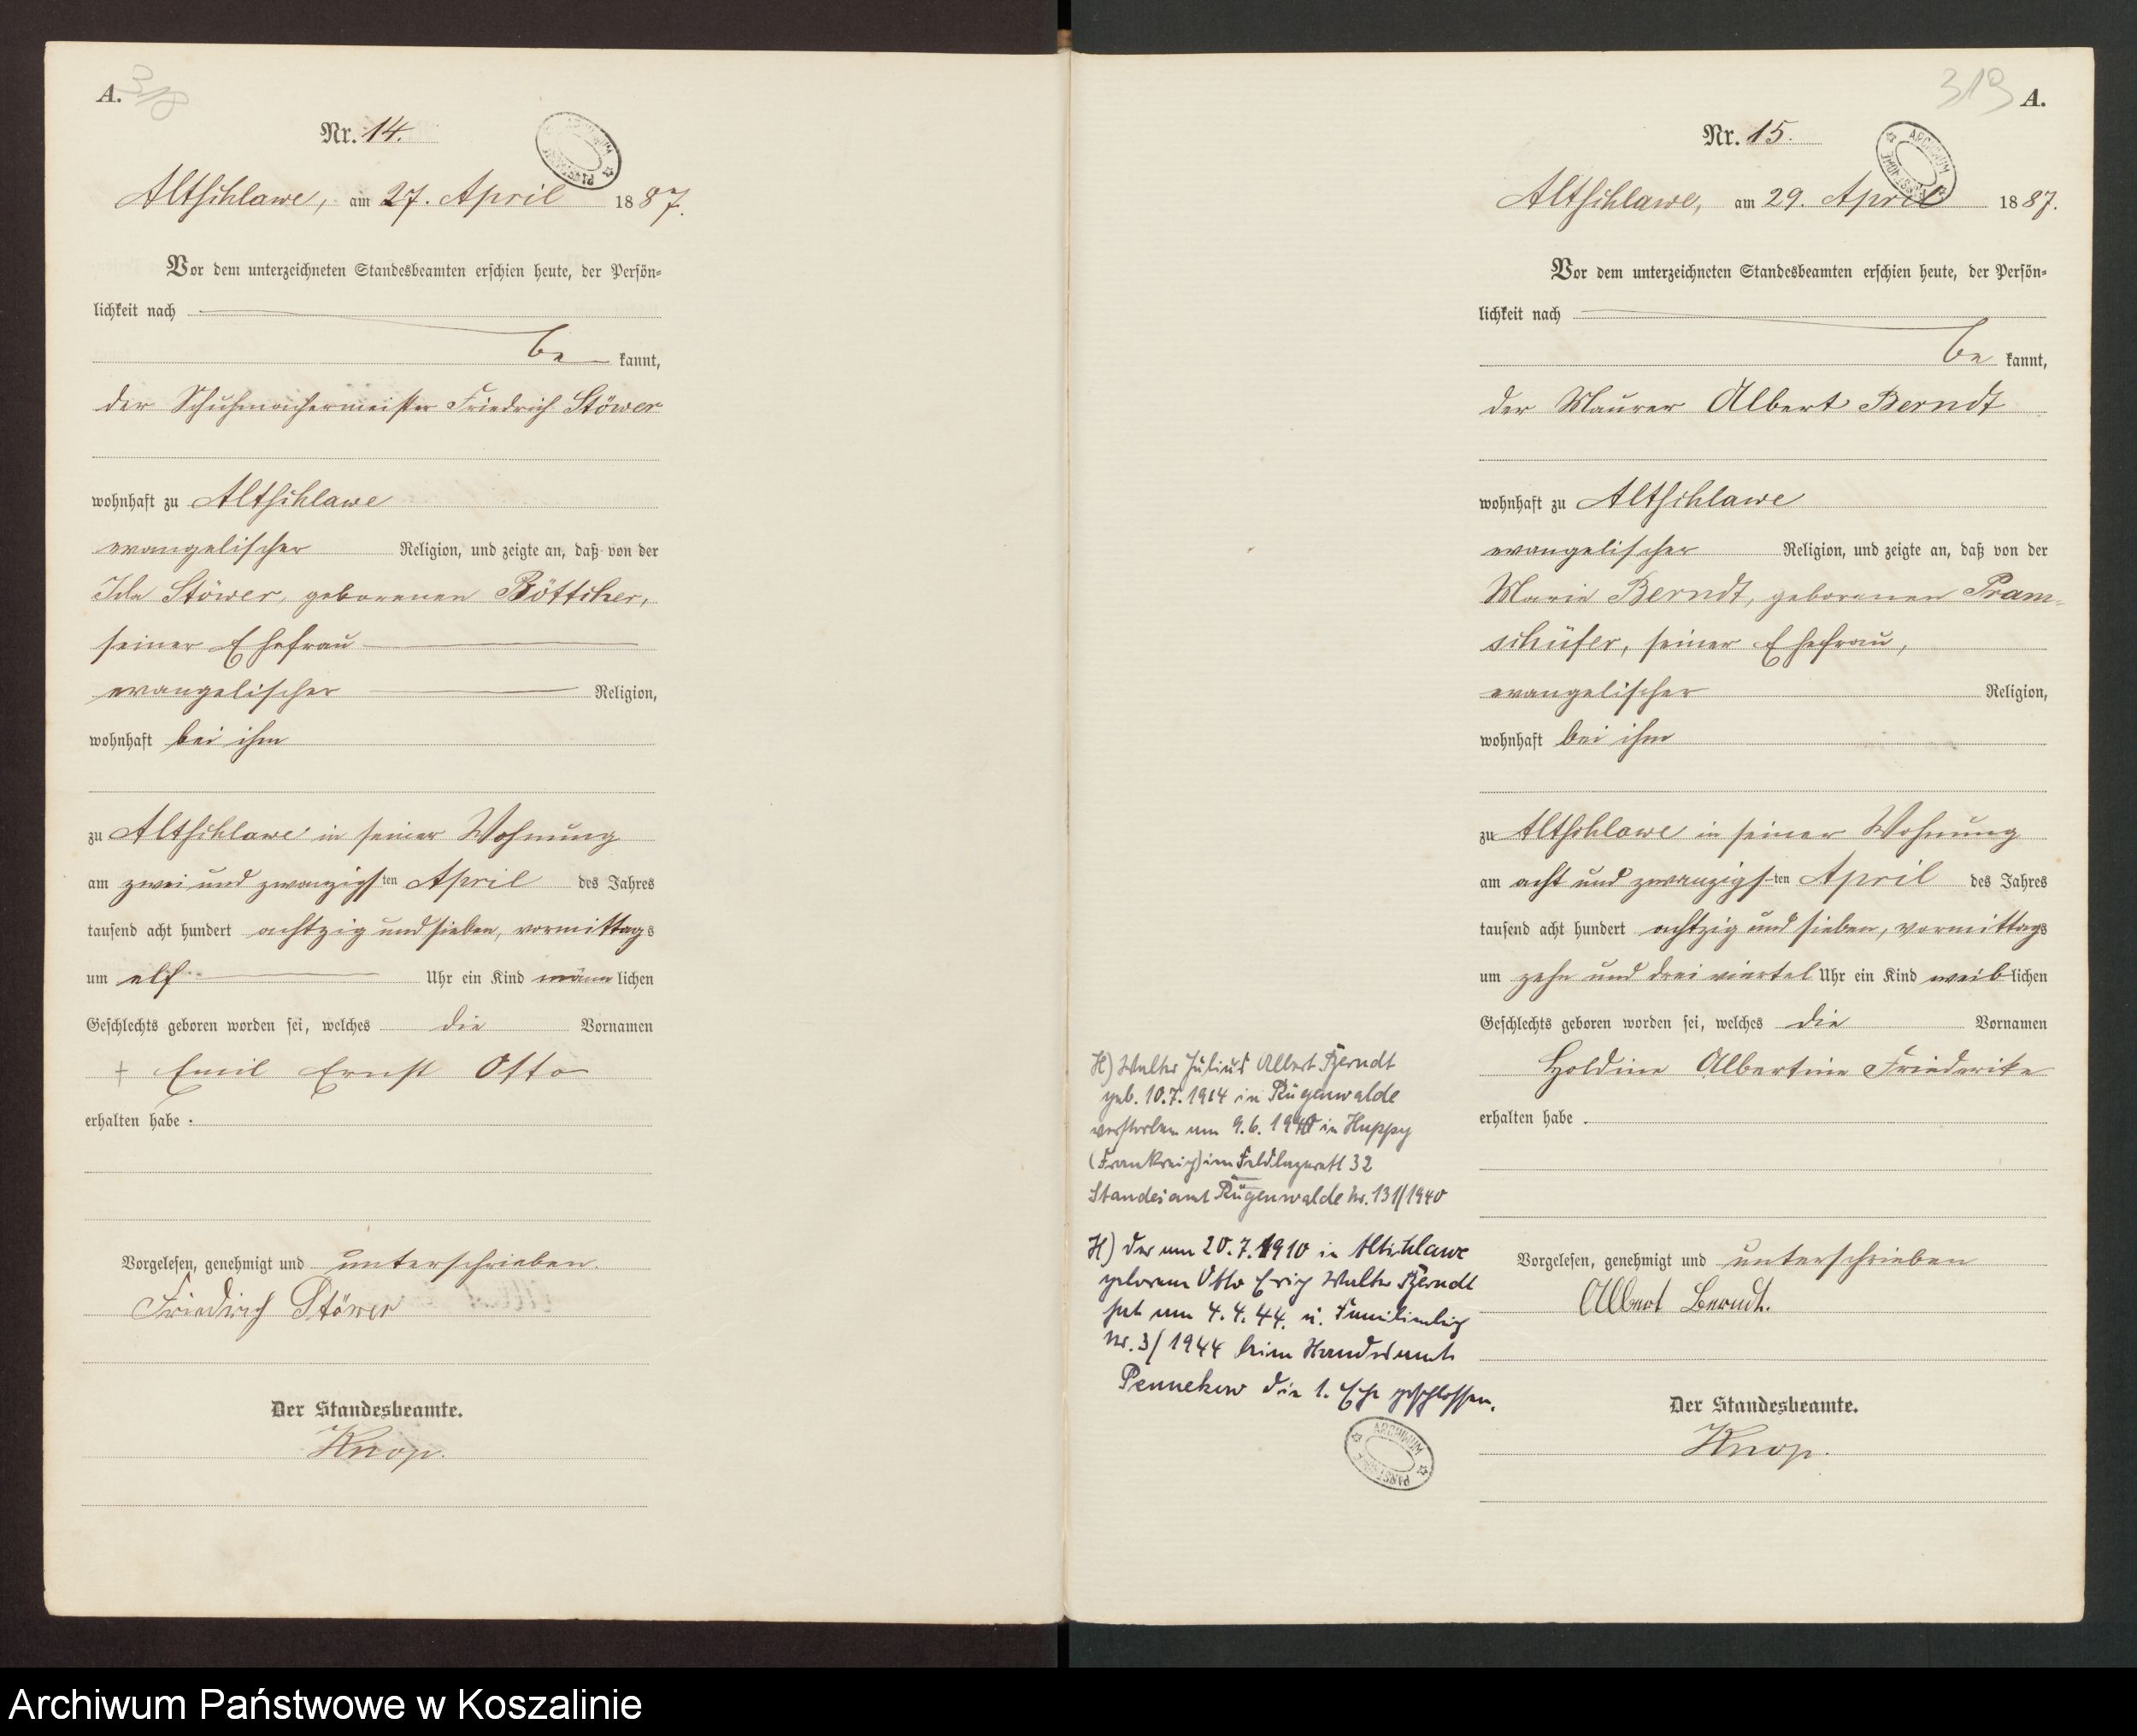 A.
318
Nr. 14.
Altschlawe, am 27. April 1887.
Vor dem unterzeichneten Standesbeamten erschien heute, der Persön=
lichkeit nach
be kannt,
der Schuhmachermeister Friedrich Stöwer
wohnhaft zu Altschlawe
evangelischer Religion, und zeigte an, daß von der
Ida Stöwer, geborenen Böttcher,
seiner Ehefrau
evangelischer Religion,
wohnhaft bei ihm
zu Altschlawe in seiner Wohnung
am zwei und zwanzigsten April des Jahres
tausend acht hundert achtzig und sieben, vormittags
um elf Uhr ein Kind männlichen
Geschlechts geboren worden sei, welches die Vornamen
+ Emil Ernst Otto
erhalten habe.
Vorgelesen, genehmigt und unterschrieben.
Friedrich Stöwer
Der Standesbeamte.
Knop.
319 A.
Nr. 15.
Altschlawe, am 29. April 1887.
Vor dem unterzeichneten Standesbeamten erschien heute, der Persön=
lichkeit nach
be kannt,
der Maurer Albert Berndt
wohnhaft zu Altschlawe
evangelischer Religion, und zeigte an, daß von der
Marie Berndt, geborenen Pram=
schüfer, seiner Ehefrau,
evangelischer Religion,
wohnhaft bei ihm
zu Altschlawe in seiner Wohnung
am acht und zwanzigsten April des Jahres
tausend acht hundert achtzig und sieben, vormittags
um zehn und drei viertel Uhr ein Kind weiblichen
Geschlechts geboren worden sei, welches die Vornamen
Holdine Albertine Friederike
erhalten habe.
Vorgelesen, genehmigt und unterschrieben
Albert Berndt.
Der Standesbeamte.
Knop.
H) Walter Julius Albert Berndt
geb. 10.7.1914 in Rügenwalde
verstorben am 9.6.1940 in Huppy
(Frankreich) im Feldlazarett 32
Standesamt Rügenwalde Nr. 131/1940
H) der am 20.7.1910 in Altschlawe
geborene Otto Erich Walter Berndt
hat am 4.4.44. u. Familienbuch
Nr. 3/1944 beim Standesamt
Pennekow die 1. Ehe geschlossen.
ARCHIWUM PAŃSTWOWE
Archiwum Państwowe w Koszalinie